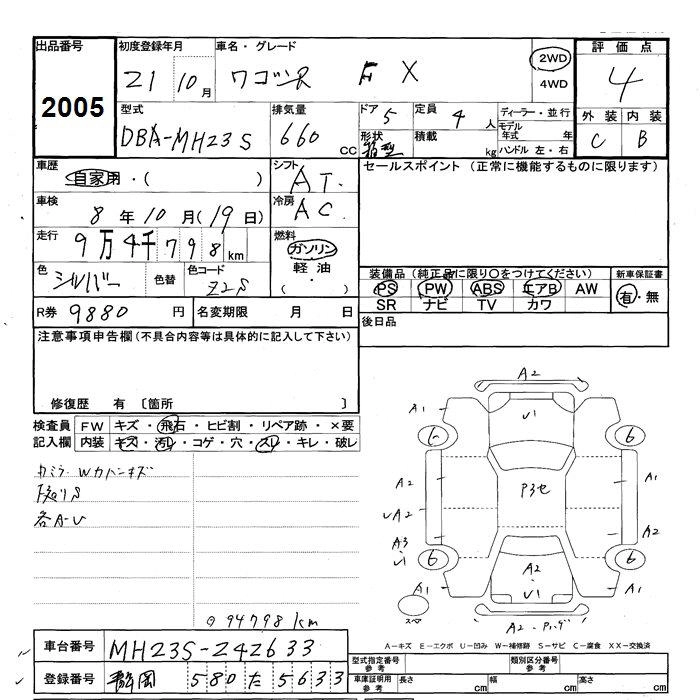 出品番号 2005
初度登録年月 21 10月
車名・グレード ワゴンR FX
2WD
4WD
評価点 4
型式 DBA-MH23S
排気量 660 CC
ドア 5
形状 箱型
定員 4 人
積載 kg
ディーラー・並行
モデル年式 年
ハンドル 左・右
外装 内装
C B
車歴 自家用・( )
シフト AT.
セールスポイント (正常に機能するものに限ります)
車検 8年10月(19日)
冷房 AC
走行 9万4千798km
燃料 ガソリン
軽油
・( )
色 シルバー 色替 色コード Z2S
装備品 (純正品に限り○をつけてください) 新車保証書
PS PW ABS エアB AW 有・無
SR ナビ TV カワ
R券 9880円 名変期限 月 日
後日品
注意事項申告欄(不具合内容等は具体的に記入して下さい)
修復歴 有 〔箇所 〕
検査員 FW キズ・飛石・ヒビ割・リペア跡・×要
記入欄 内装 キズ・汚レ・コゲ・穴・スレ・キレ・破レ
各A-U
⊙94798km
A2
A1 U1 A1
6 6
A2 P3セ A1
A2 A2
A3
U1
6 6
A1 A2・U1 A1
A2
A-キズ E-エクボ U-凹み W-補修跡 S-サビ C-腐食 XX-交換済
車台番号 MH23S-242633
型式指定番号 参考 類別区分番号 参考
登録番号 静岡 580 た 5633
車庫証明用 参考 長さ cm 幅 cm 高さ cm